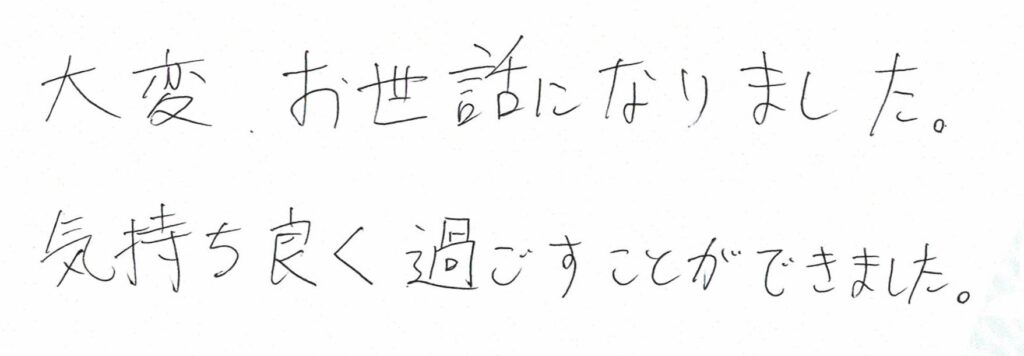 大変、お世話になりました。
気持ち良く過ごすことができました。